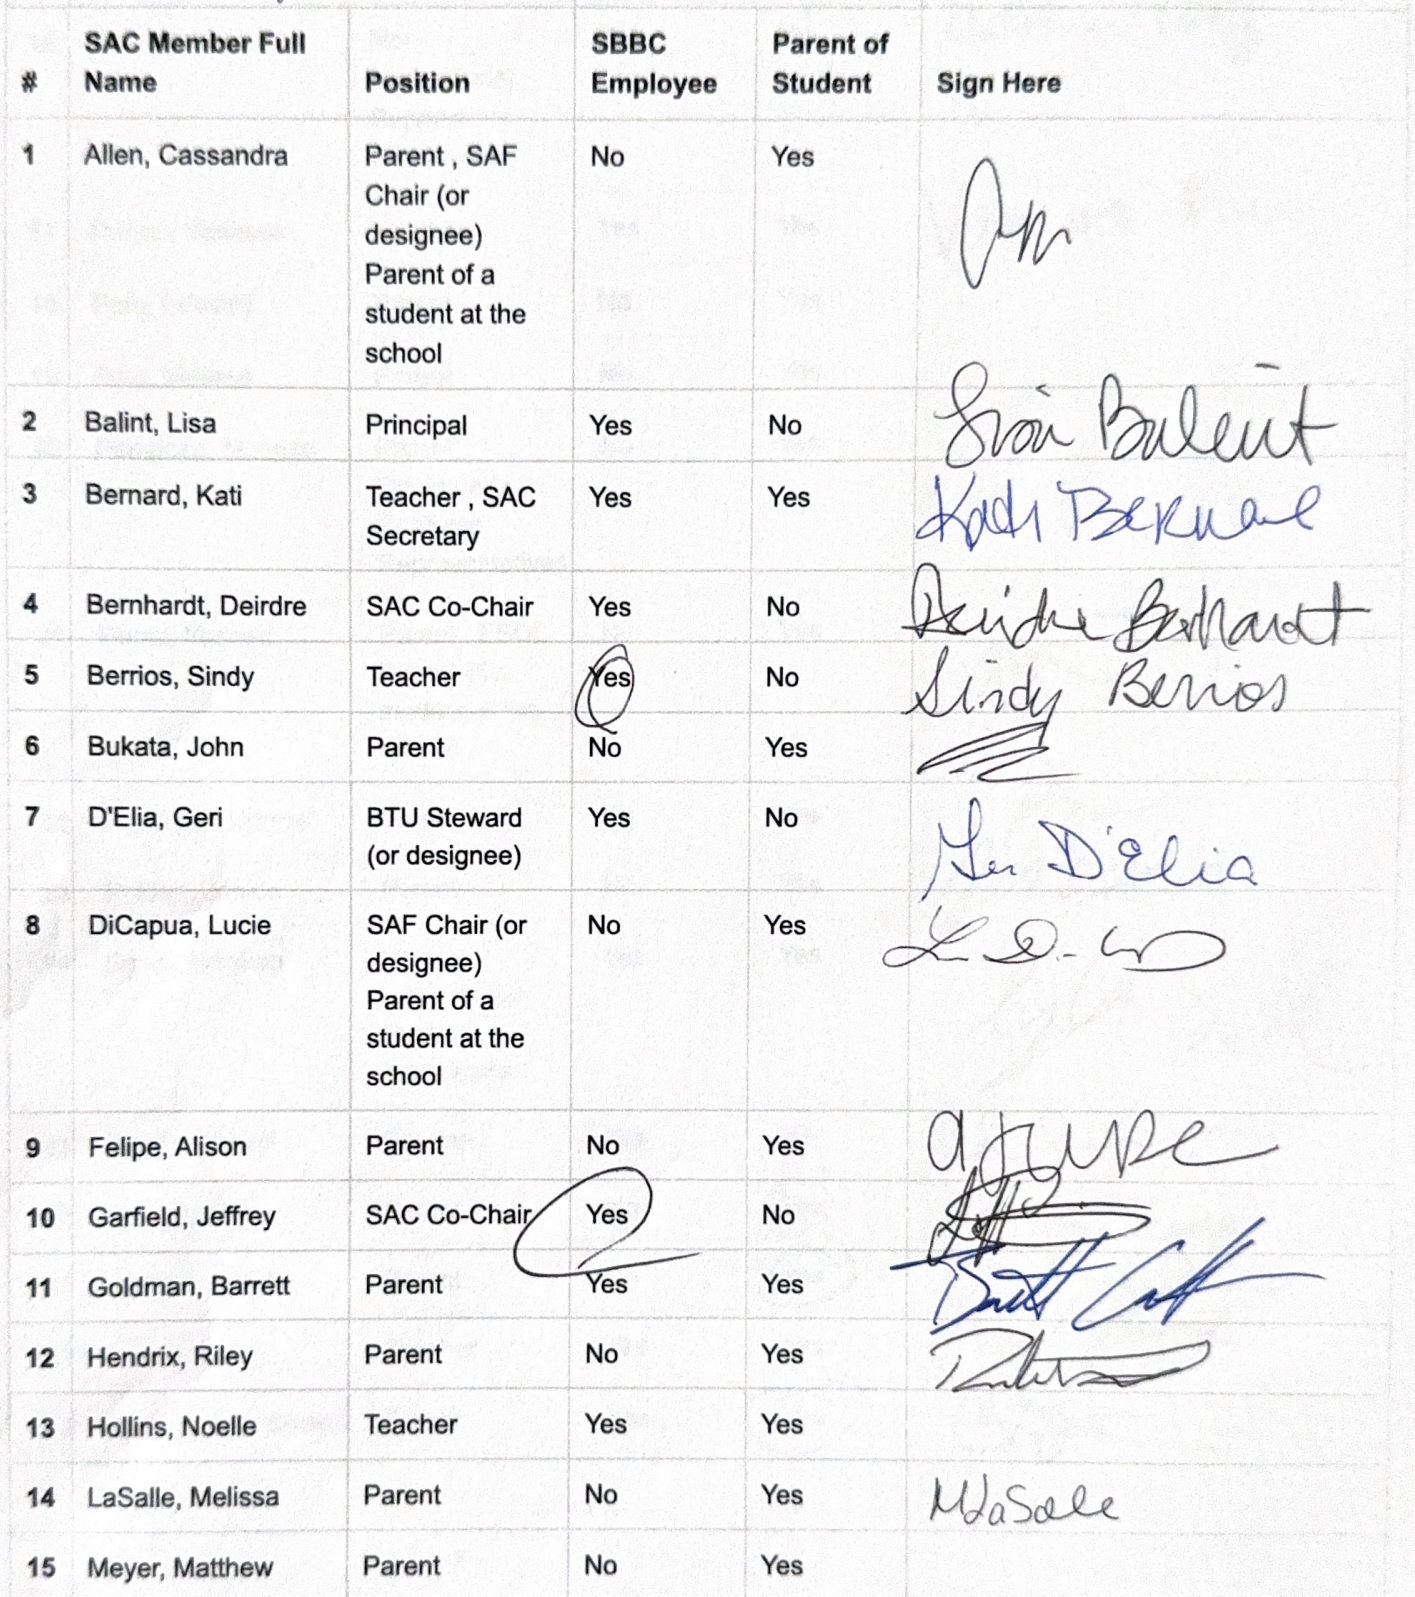 # SAC Member Full Name Position SBBC Employee Parent of Student Sign Here
1 Allen, Cassandra Parent , SAF Chair (or designee) Parent of a student at the school No Yes
2 Balint, Lisa Principal Yes No Lisa Balint
3 Bernard, Kati Teacher , SAC Secretary Yes Yes Kati Bernard
4 Bernhardt, Deirdre SAC Co-Chair Yes No Deirdre Bernhardt
5 Berrios, Sindy Teacher Yes No Sindy Berrios
6 Bukata, John Parent No Yes
7 D'Elia, Geri BTU Steward (or designee) Yes No Geri D'Elia
8 DiCapua, Lucie SAF Chair (or designee) Parent of a student at the school No Yes
9 Felipe, Alison Parent No Yes
10 Garfield, Jeffrey SAC Co-Chair Yes No
11 Goldman, Barrett Parent Yes Yes
12 Hendrix, Riley Parent No Yes
13 Hollins, Noelle Teacher Yes Yes
14 LaSalle, Melissa Parent No Yes MLaSalle
15 Meyer, Matthew Parent No Yes